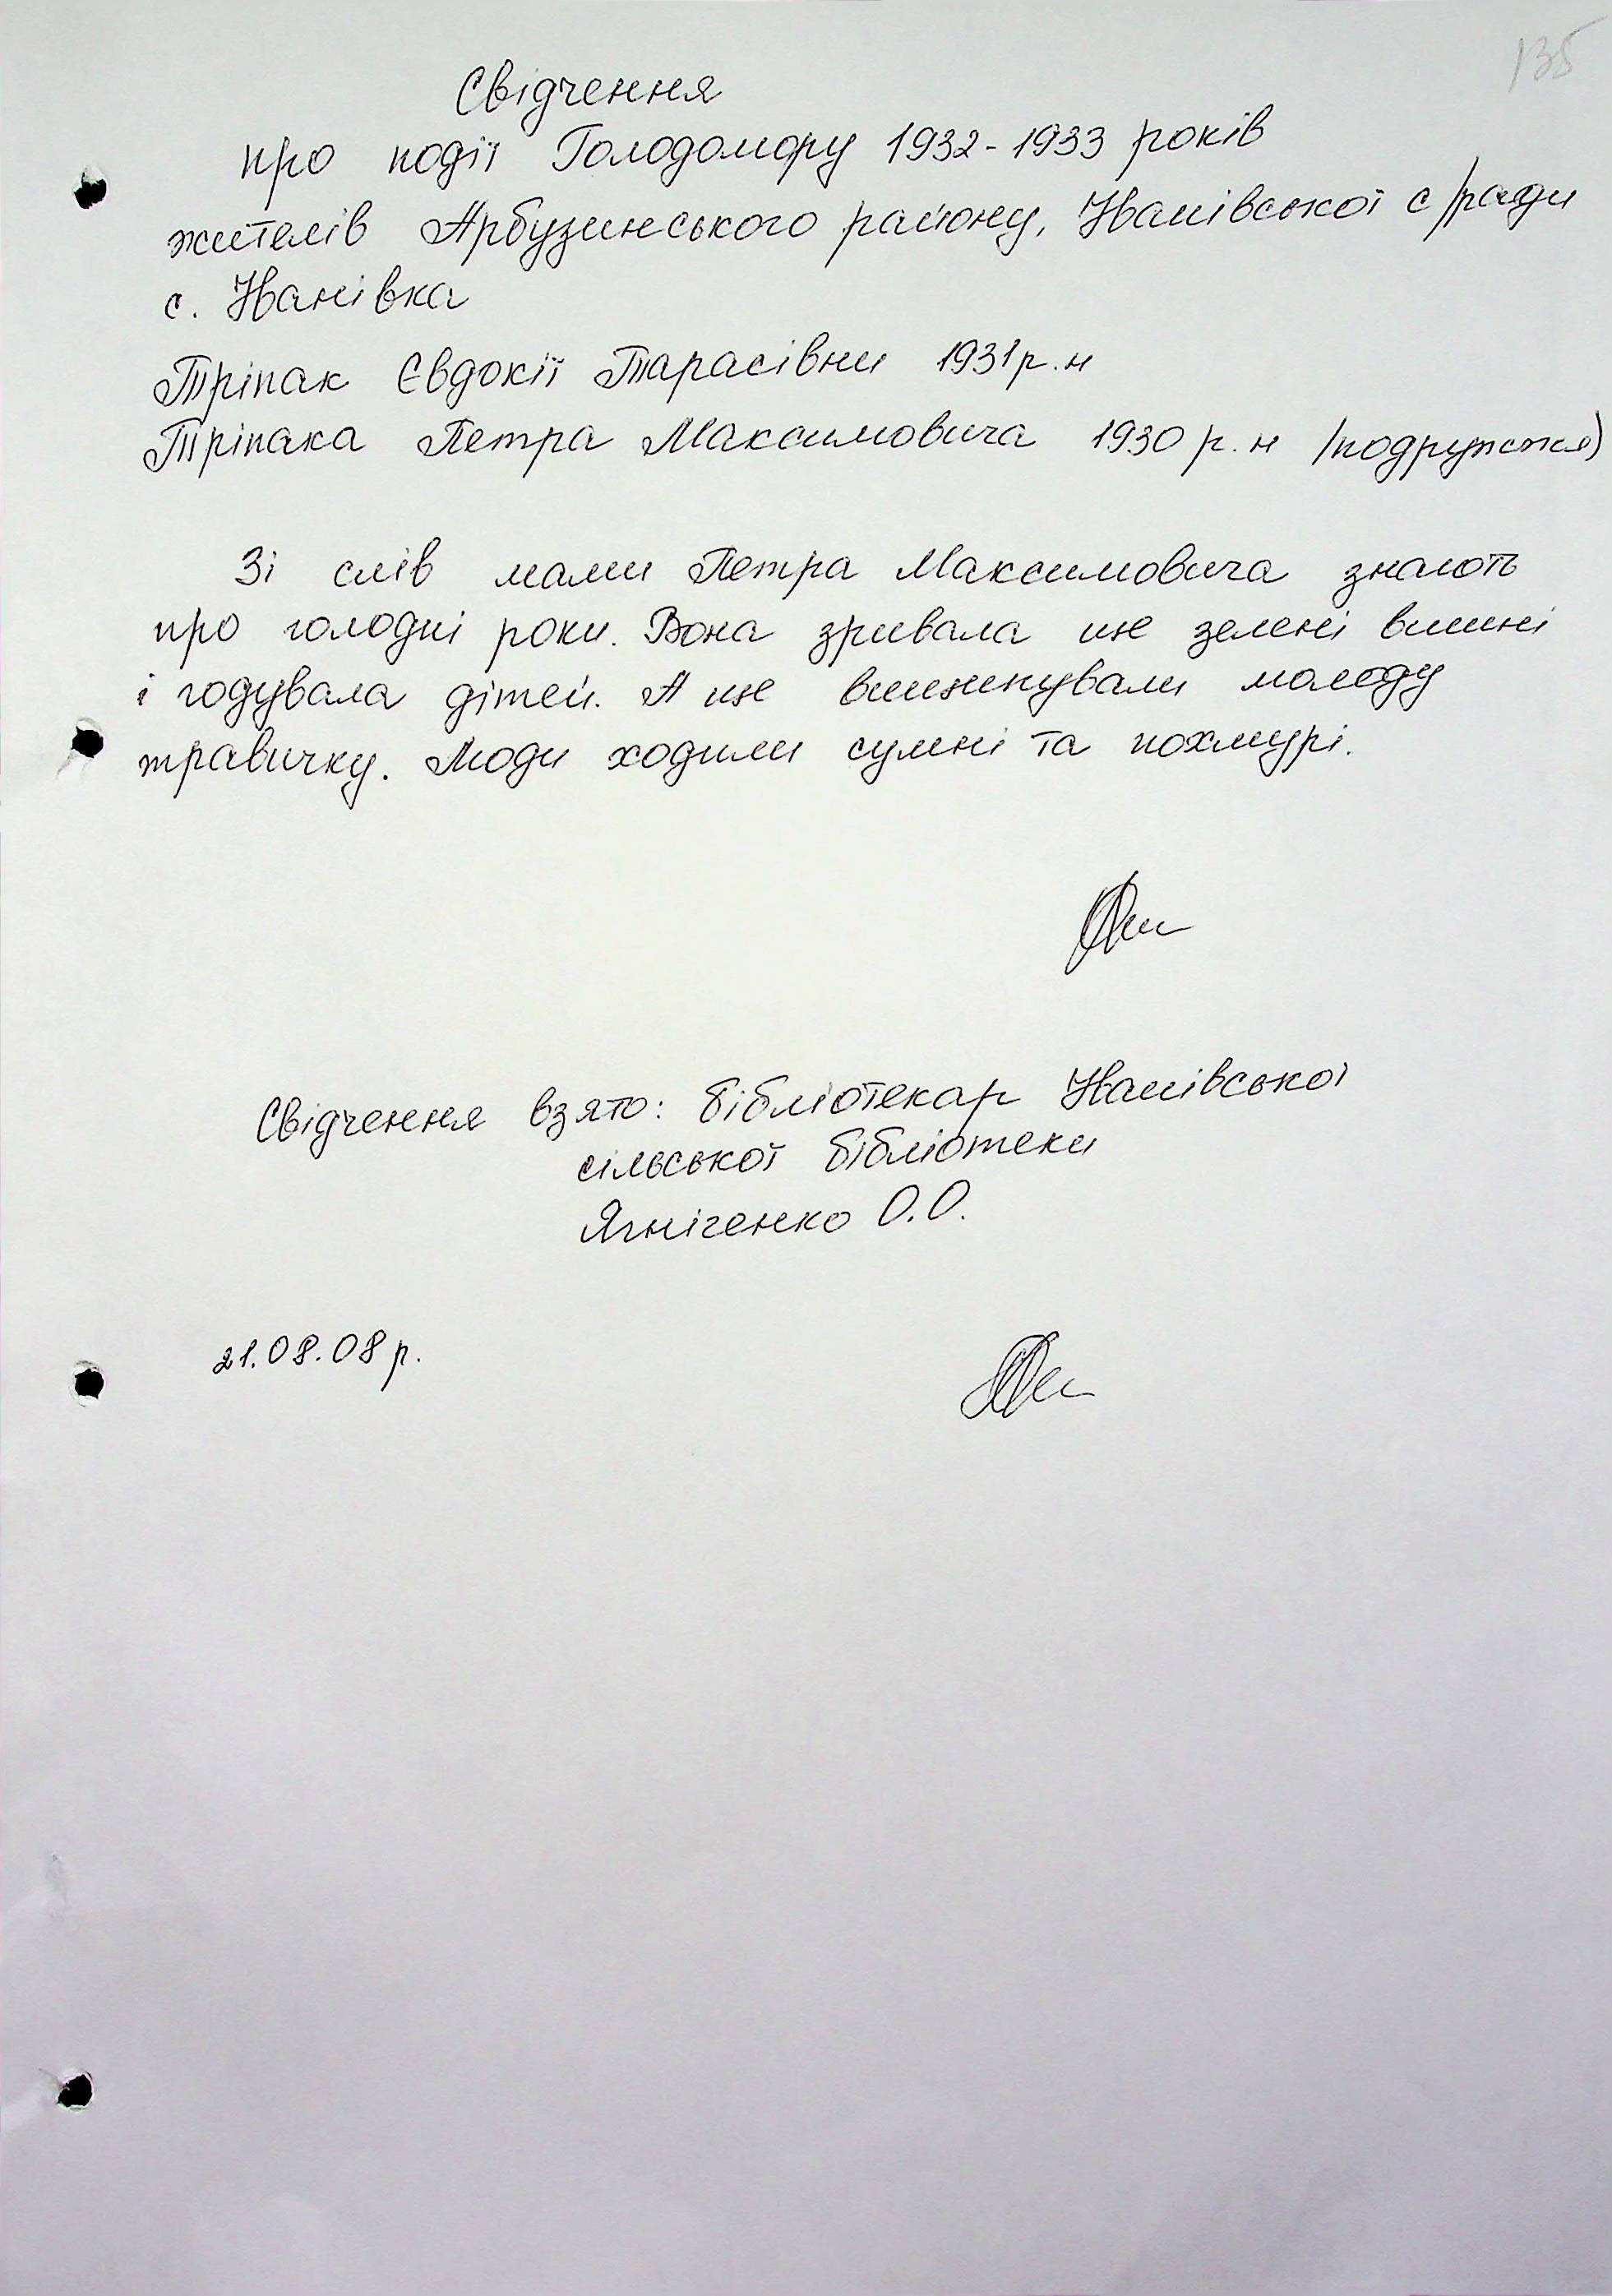 135
Свідчення
про події Голодомору 1932-1933 років
жителів Арбузинського району, Іванівської с/ради
с. Іванівка
Тріпак Євдокії Тарасівни 1931р.н
Тріпака Петра Максимовича 1930 р.н /подружжя)
Зі слів мами Петра Максимовича знають
про голодні роки. Вона зривала ще зелені вишні
і годувала дітей. А ще вищипували молоду
травичку. Люди ходили сумні та похмурі.
Свідчення взято: бібліотекар Іванівської
сільської бібліотеки
О.О.
21.08.08 р.